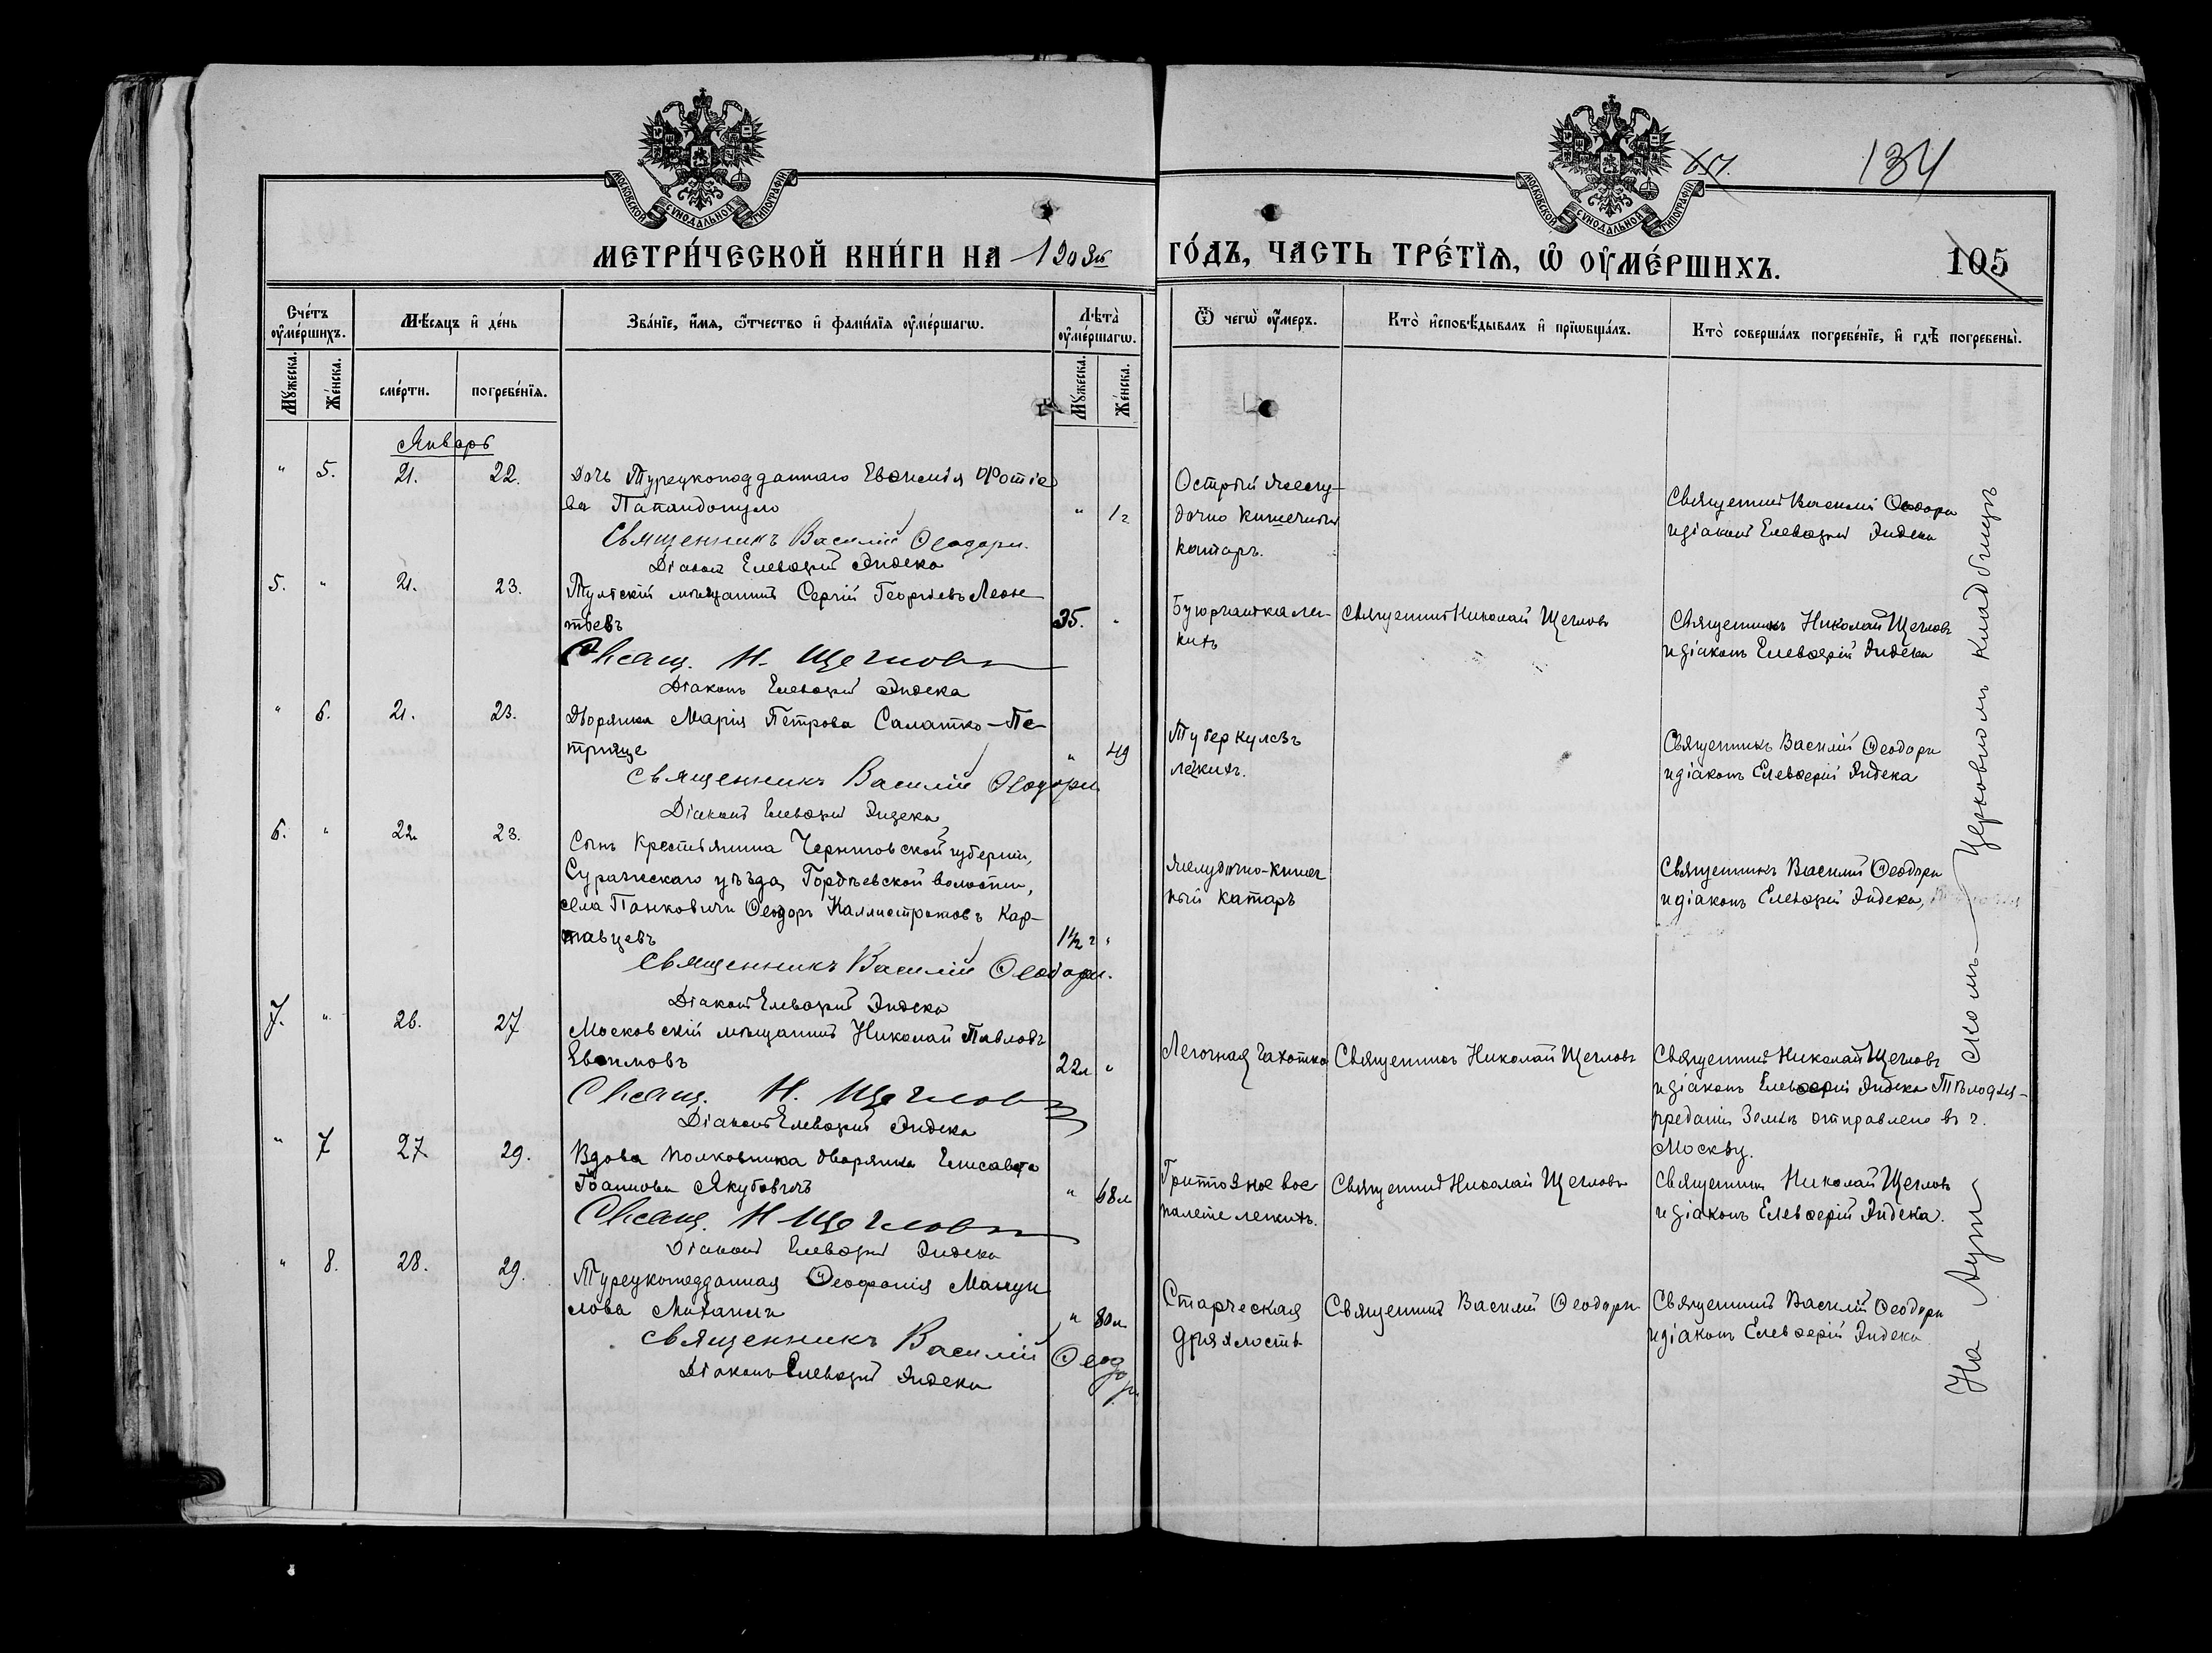 МОСКОВСКОЙ СУНОДАЛЬНОЙ ТИПОГРАФІИ
МОСКОВСКОЙ СУНОДАЛЬНОЙ ТИПОГРАФІИ
134
МЕТРИ́ЧЕСКОЙ КНИ́ГИ НА 1908й
ГО́ДЪ, ЧАСТЬ ТРЕ́ТЇѦ, Ѽ ОУ҆МЕ́РШИХЪ.
105
Сче́тъ оу҆ме́ршихъ.
Мѣ́сѧцъ и҆ де́нь
Зва́нїе, и҆́мѧ, ѻ҆́тчество и҆ фами́лїѧ оу҆ме́ршагѡ.
Лѣ́та оу҆ме́ршагѡ.
Ѿ чегѡ̀ оу҆́меръ.
Кто̀ и҆сповѣ́дывалъ и҆ прїѡбща́лъ.
Кто̀ соверша́лъ погребе́нїе, и҆ гдѣ̀ погребены̀.
Мꙋ́жеска.
Же́нска.
сме́рти.
погребе́нїѧ.
Мꙋ́жеска.
Же́нска.
Январь
" 5. 21. 22. Дочь Турецкоподданнаго Евѳимія Фотіе
ва Папандопуло " 1 г
Священникъ Василій Ѳеодори.
Діаконъ Елевѳерій Индека
Острый желу-
дочно кишечный
катаръ.
Священникъ Василій Ѳеодори
и діаконъ Елевѳерій Индека
5. " 21. 23. Тульскій мѣщанинъ Сергій Георгіевъ Леон
тьевъ 35. "
Свящ. Н. Щегловъ
Діаконъ Елевѳерій Индека
Бугорчатка ле-
кихъ
Священникъ Николай Щегловъ
Священникъ Николай Щегловъ
и діаконъ Елевѳерій Индека
" 6. 21. 23. Дворянка Марія Петрова Салатко-Пе-
трище " 49
Священникъ Василій Ѳеодори
Діаконъ Елевѳерій Индека
Туберкулезъ
легкихъ.
Священникъ Василій Ѳеодори
и діаконъ Елевѳерій Индека
6. " 22 23. Сынъ Крестьянина Черниговской губерніи,
Суражскаго уѣзда, Гордѣевской волости,
села Панковичи Ѳеодоръ Каллистратовъ Кар-
тавцевъ 1½ г "
Священникъ Василій Ѳеодори.
Діаконъ Елевѳерій Индека
Желудочно-кишеч
ный катаръ
Священникъ Василій Ѳеодори
и діаконъ Елевѳерій Индека,
7. " 26. 27 Московскій мѣщанинъ Николай Павловъ
Евѳимовъ 22 л "
Свящ. Н. Щегловъ
Діаконъ Елевѳерій Индека
Легочная чахотка
Священникъ Николай Щегловъ
Священникъ Николай Щегловъ
и діаконъ Елевѳерій Индека Тѣло для
преданія землѣ отправлено въ г.
Москву.
" 7 27 29. Вдова полковника дворянка Елисавета
Іоаннова Якубовичъ " 68 л
Свящ. Н Щегловъ
Діаконъ Елевѳерій Индека
Гриппозное вос
паленіе легкихъ.
Священникъ Николай Щегловъ
Священникъ Николай Щегловъ
и діаконъ Елевѳерій Индека.
" 8. 28. 29. Турецкоподданная Ѳеофанія Мануи
лова " 80 л
Священникъ Василій Ѳеодори
Діаконъ Елевѳерій Индека
Старческая
дряхлость
Священникъ Василій Ѳеодори
Священникъ Василій Ѳеодори
и діаконъ Елевѳерій Индека
На Аутскомъ Церковномъ кладбищѣ